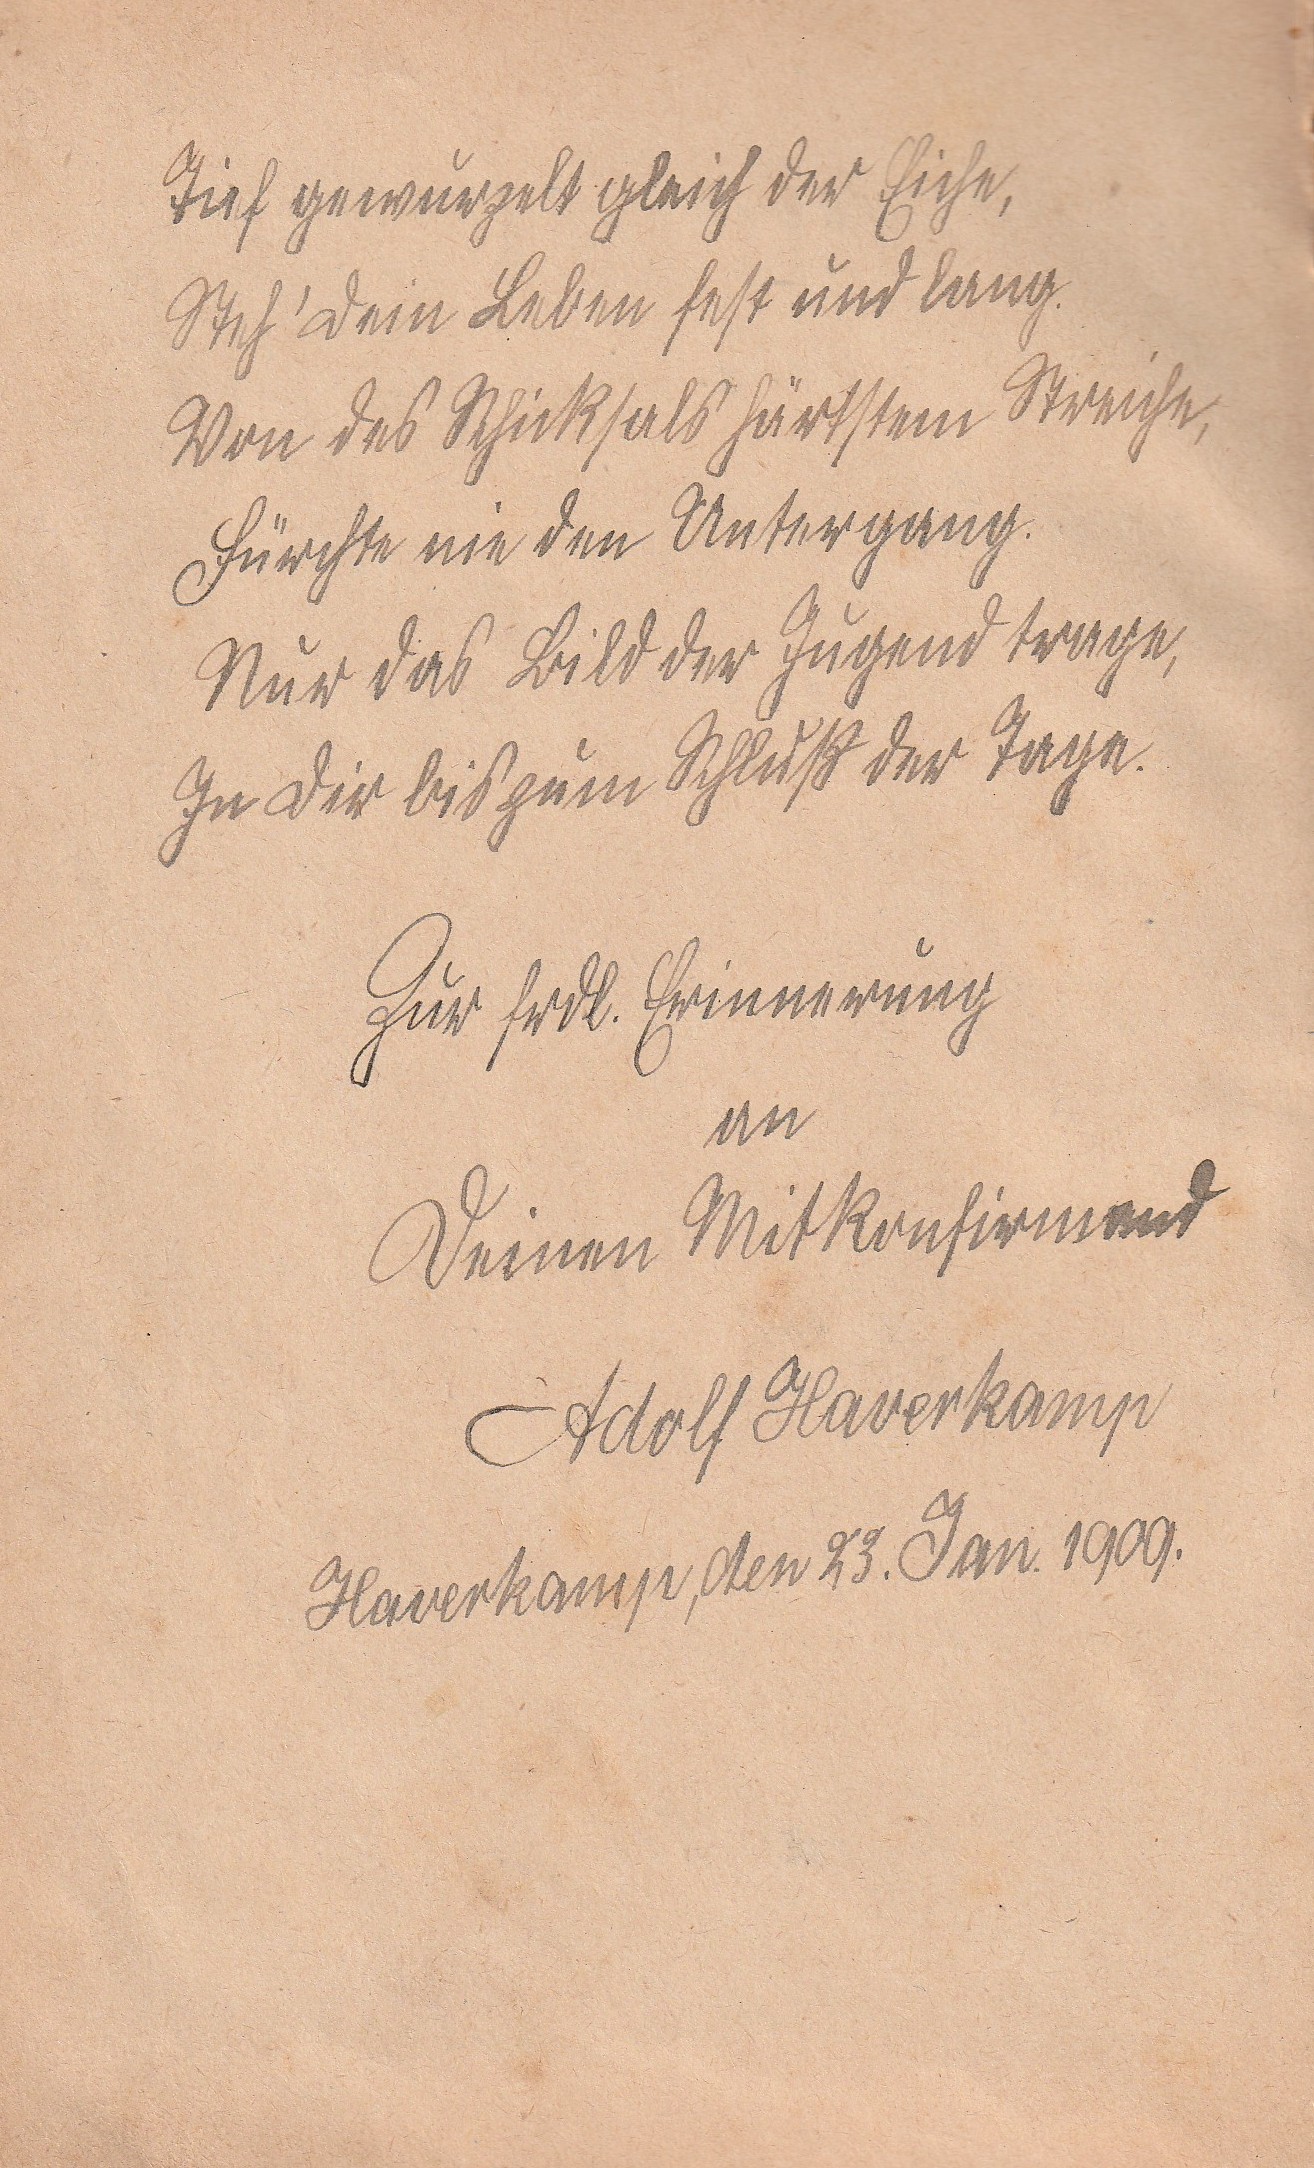 Tief gewurzelt gleich der Eiche,
Steh' dein Leben fest und lang.
Von des Schicksals härtstem Streiche,
Fürchte nie den Untergang.
Nur das Bild der Jugend trage,
In dir bis zum Schluß der Tage.
Zur frdl. Erinnerung
an
Deinen Mitkonfirmand
Adolf Haverkamp
Haverkamp, den 23. Jan. 1909.